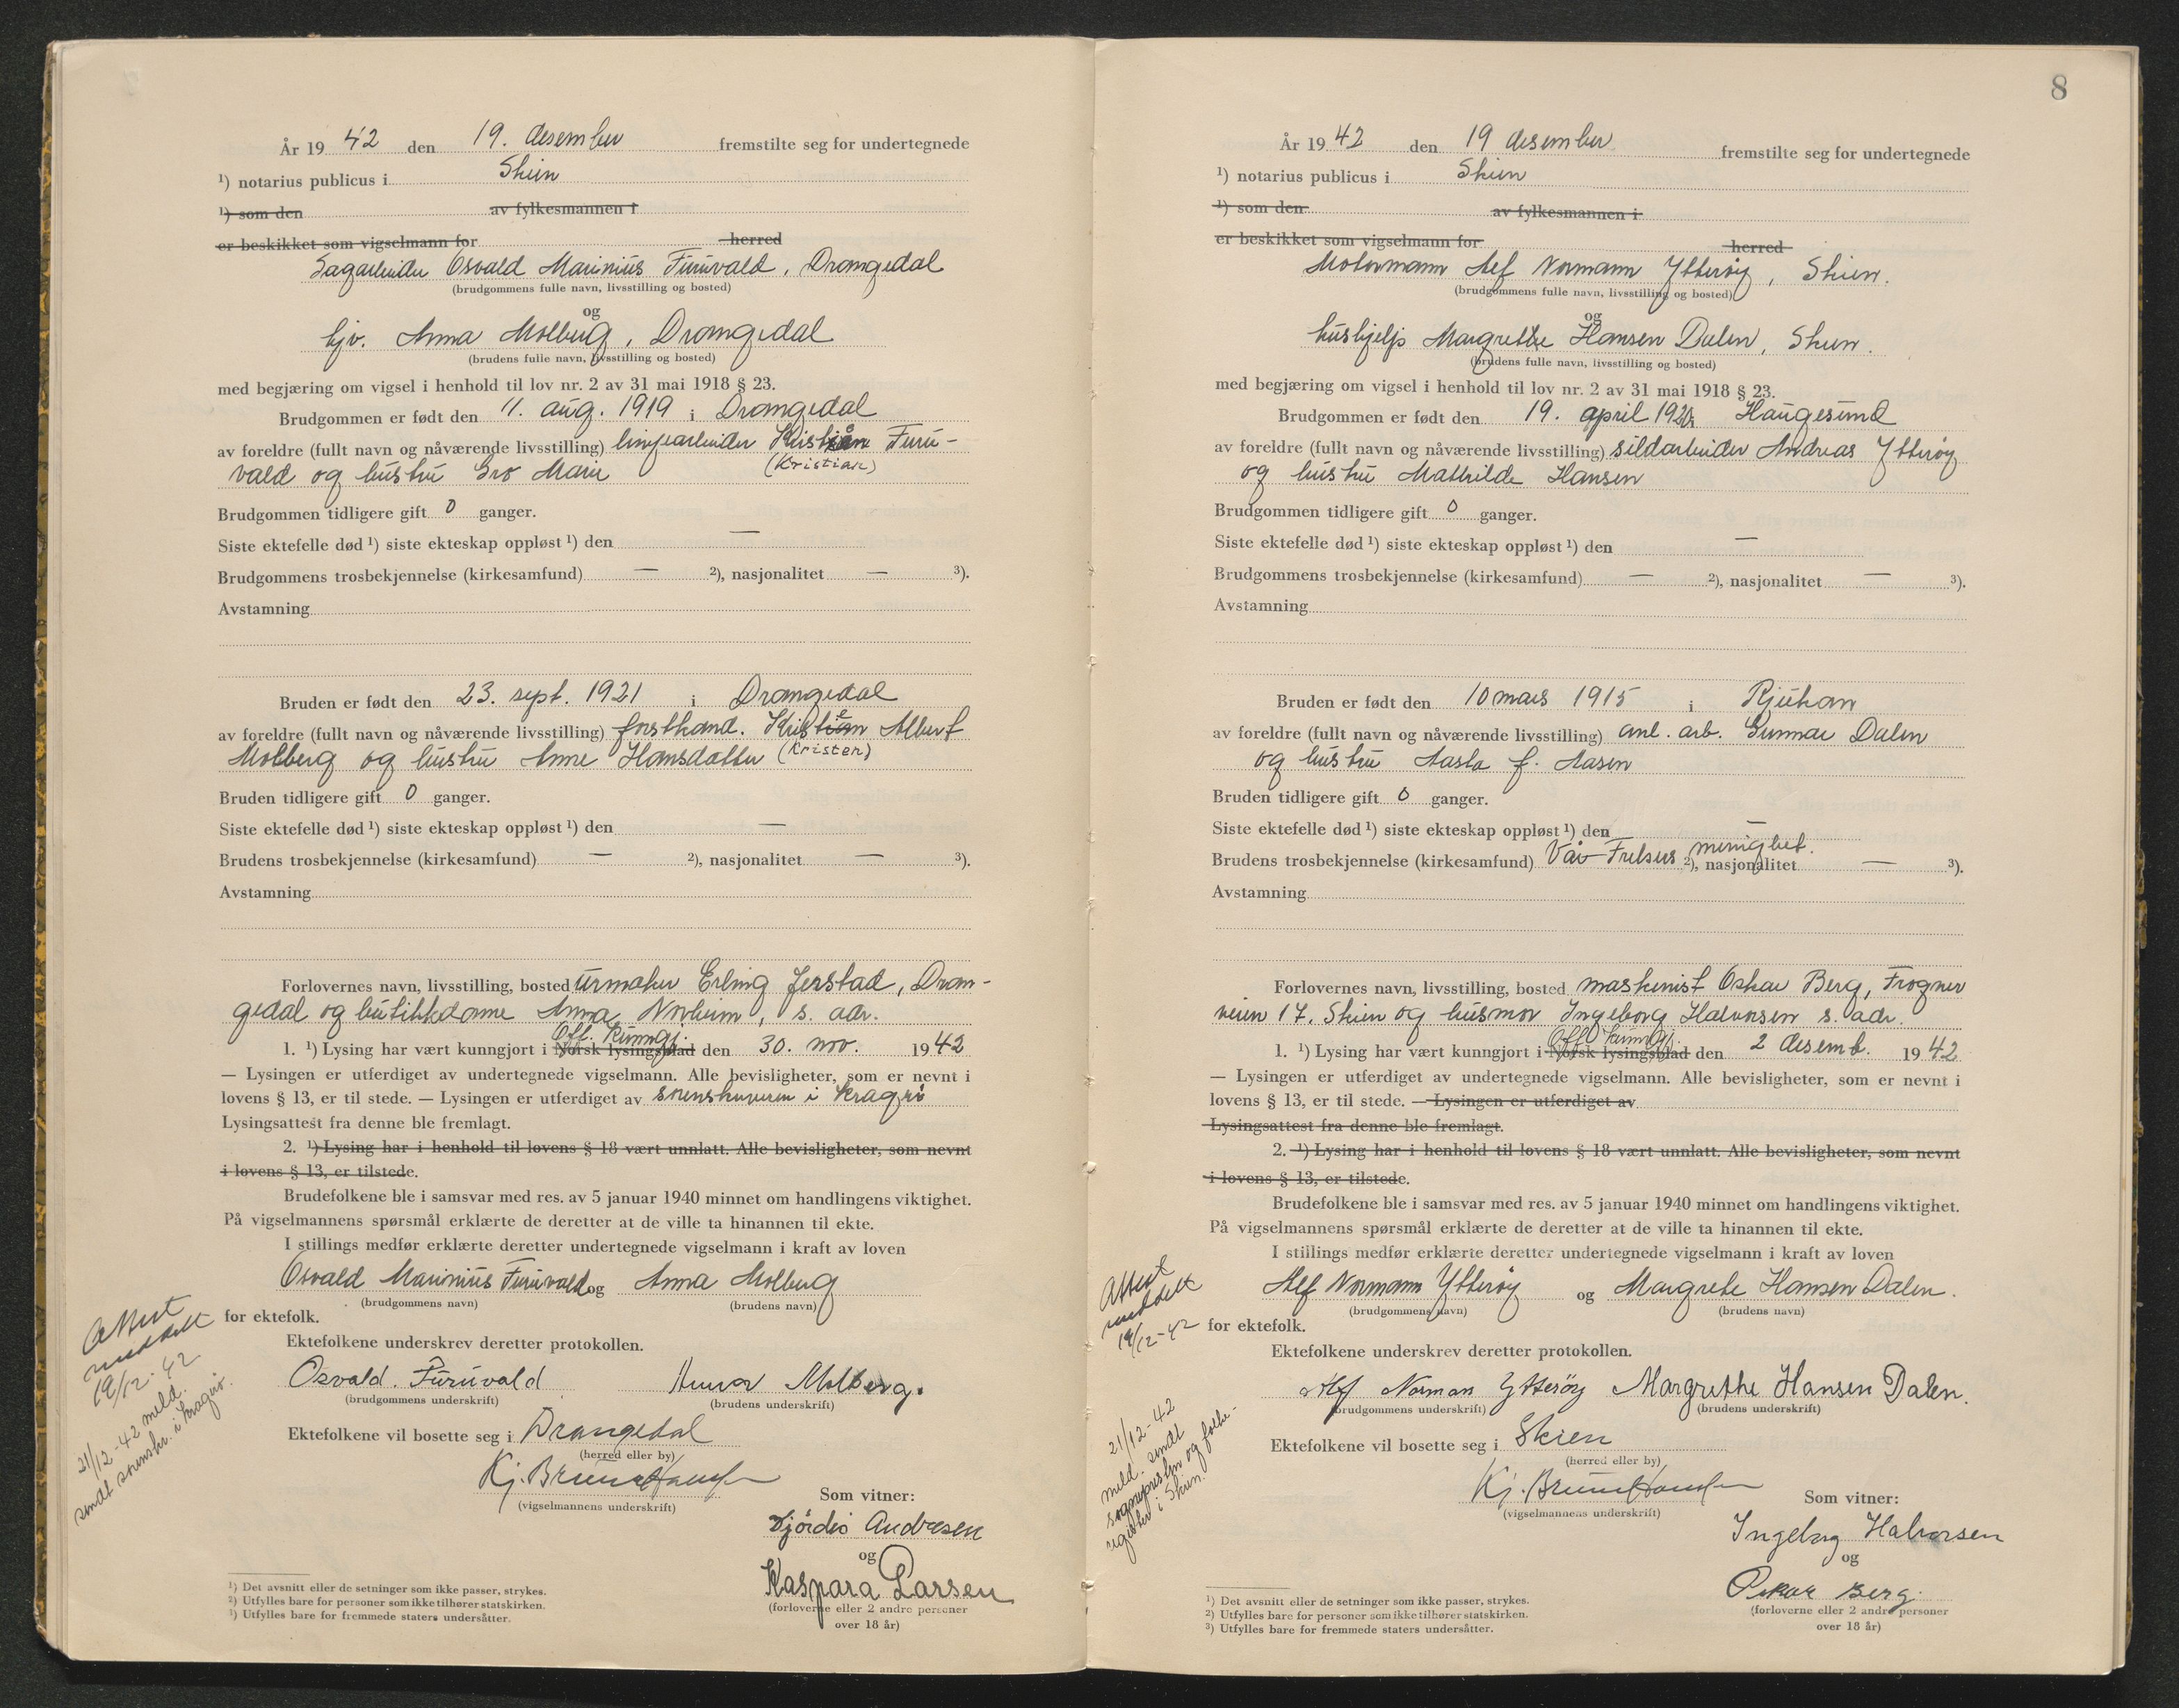 År 1942 den 19. desember fremstilte seg for undertegnede
1) notarius publicus i Skien
1) som den av fylkesmannen i
er beskikket som vigselmann for herred
Sagarbeider Osvald Marinius Furuvald, Drangedal
(brudgommens fulle navn, livsstilling og bosted)
og
hjv. Anna Molberg, Drangedal
(brudens fulle navn, livsstilling og bosted)
med begjæring om vigsel i henhold til lov nr. 2 av 31 mai 1918 § 23.
Brudgommen er født den 11. aug. 1919 i Drangedal
av foreldre (fullt navn og nåværende livsstilling) linjearbeider Kristian Furu-
vald og hustru Gro Marie (Kristian)
Brudgommen tidligere gift 0 ganger.
Siste ektefelle død 1) siste ekteskap oppløst 1) den —
Brudgommens trosbekjennelse (kirkesamfund) — 2), nasjonalitet — 3).
Avstamning
Bruden er født den 23. sept. 1921 i Drangedal
av foreldre (fullt navn og nåværende livsstilling) forsthand. Kristen Albert
Molberg og hustru Anne Hansdatter (Kristen)
Bruden tidligere gift 0 ganger.
Siste ektefelle død 1) siste ekteskap oppløst 1) den —
Brudens trosbekjennelse (kirkesamfund) — 2), nasjonalitet — 3).
Avstamning
Forlovernes navn, livsstilling, bosted urmaker Erling Jerstad, Dran-
gedal og butikkdame Anna Norheim, s. adr.
Off. Kunngj.
1. 1) Lysing har vært kunngjort i Norsk lysingsblad den 30. nov. 1942
— Lysingen er utferdiget av undertegnede vigselmann. Alle bevisligheter, som er nevnt i
lovens § 13, er til stede. — Lysingen er utferdiget av sorenskriveren i Kragerø
Lysingsattest fra denne ble fremlagt.
2. 1) Lysing har i henhold til lovens § 18 vært unnlatt. Alle bevisligheter, som nevnt
i lovens § 13, er tilstede.
Brudefolkene ble i samsvar med res. av 5 januar 1940 minnet om handlingens viktighet.
På vigselmannens spørsmål erklærte de deretter at de ville ta hinannen til ekte.
I stillings medfør erklærte deretter undertegnede vigselmann i kraft av loven
Osvald Marinius Furuvald og Anna Molberg
(brudgommens navn) (brudens navn)
for ektefolk.
Attest
meddelt
19/12-42
21/12-42 meld.
sendt sorenskr. i Kragerø.
Ektefolkene underskrev deretter protokollen.
Osvald. Furuvald Anna Molberg.
(brudgommens underskrift) (brudens underskrift)
Ektefolkene vil bosette seg i Drangedal
(herred eller by)
Kj. Bruun Hansen
(vigselmannens underskrift)
Som vitner:
Hjördis Andresen
og
Kaspara Larsen
(forloverne eller 2 andre personer
over 18 år)
1) Det avsnitt eller de setninger som ikke passer, strykes.
2) Utfylles bare for personer som ikke tilhører statskirken.
3) Utfylles bare for fremmede staters undersåtter.
8
År 1942 den 19 desember fremstilte seg for undertegnede
1) notarius publicus i Skien
1) som den av fylkesmannen i
er beskikket som vigselmann for herred
Motormann Alf Normann Ytterøy, Skien.
(brudgommens fulle navn, livsstilling og bosted)
og
hushjelp Margrethe Hansen Dalen, Skien.
(brudens fulle navn, livsstilling og bosted)
med begjæring om vigsel i henhold til lov nr. 2 av 31 mai 1918 § 23.
Brudgommen er født den 19. april Haugesund
av foreldre (fullt navn og nåværende livsstilling) sildarbeider Andreas Ytterøy
og hustru Mathilde Hansen
Brudgommen tidligere gift 0 ganger.
Siste ektefelle død 1) siste ekteskap oppløst 1) den —
Brudgommens trosbekjennelse (kirkesamfund) — 2), nasjonalitet — 3).
Avstamning
Bruden er født den 10 mars 1915 i Rjukan
av foreldre (fullt navn og nåværende livsstilling) anl. arb. Gunnar Dalen
og hustru Aasta f. Aasen
Bruden tidligere gift 0 ganger.
Siste ektefelle død 1) siste ekteskap oppløst 1) den —
Brudens trosbekjennelse (kirkesamfund) Vår Frelsers menighet. 2), nasjonalitet — 3).
Avstamning
Forlovernes navn, livsstilling, bosted maskinist Oskar Berg, Frogner
veien 17. Skien og husmor Ingeborg Halvorsen s. adr.
Off. Kunngj.
1. 1) Lysing har vært kunngjort i Norsk lysingsblad den 2 desemb. 1942
— Lysingen er utferdiget av undertegnede vigselmann. Alle bevisligheter, som er nevnt i
lovens § 13, er til stede. — Lysingen er utferdiget av
Lysingsattest fra denne ble fremlagt.
2. 1) Lysing har i henhold til lovens § 18 vært unnlatt. Alle bevisligheter, som nevnt
i lovens § 13, er tilstede.
Brudefolkene ble i samsvar med res. av 5 januar 1940 minnet om handlingens viktighet.
På vigselmannens spørsmål erklærte de deretter at de ville ta hinannen til ekte.
I stillings medfør erklærte deretter undertegnede vigselmann i kraft av loven
Alf Normann Ytterøy og Margrete Hansen Dalen.
(brudgommens navn) (brudens navn)
for ektefolk.
Attest
meddelt
19/12-42
21/12-42
meld. sendt
sognepresten og folke-
register i Skien.
Ektefolkene underskrev deretter protokollen.
Alf Norman Ytteröy Margrethe Hansen Dalen.
(brudgommens underskrift) (brudens underskrift)
Ektefolkene vil bosette seg i Skien
(herred eller by)
Kj. Bruun Hansen
(vigselmannens underskrift)
Som vitner:
Ingeborg Halvorsen
og
Oskar Berg.
(forloverne eller 2 andre personer
over 18 år)
1) Det avsnitt eller de setninger som ikke passer, strykes.
2) Utfylles bare for personer som ikke tilhører statskirken.
3) Utfylles bare for fremmede staters undersåtter.